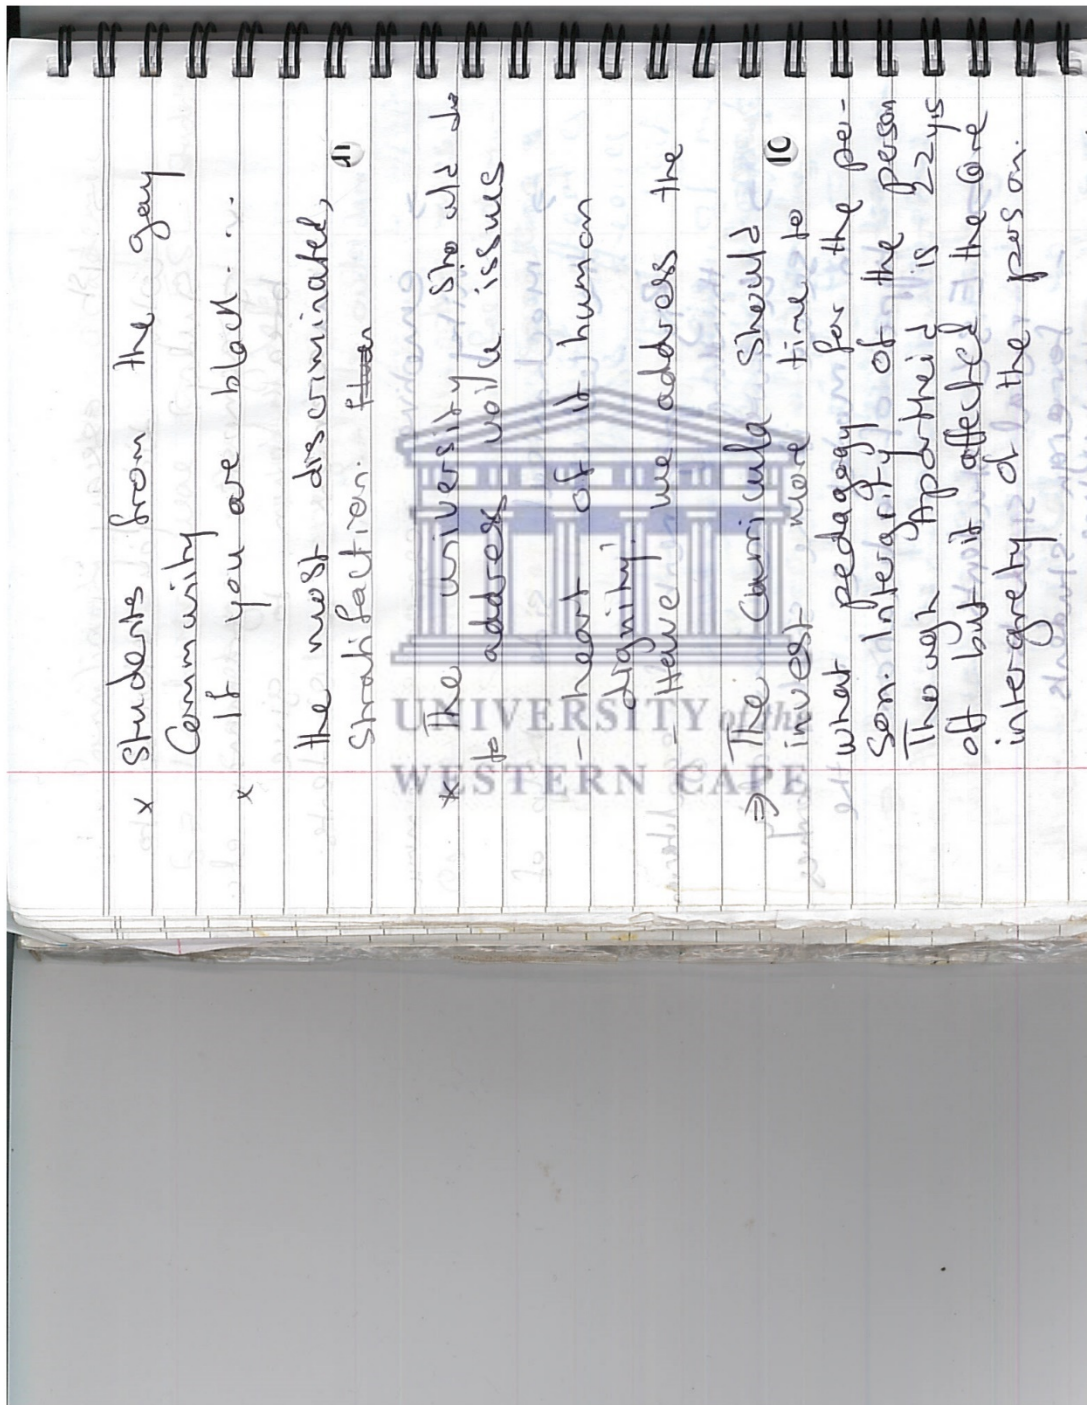 x Students from the gay
Community
x If you are black.....
the most discriminated,
Stratifaction. 11
* The university should do
to address voilce issues
- heart of it human
dignity!
- Have we address the
⇒ The Curricula Should
invest more time to 10
what pedagogy for the pe-
son. Intergrity of the person
Though Apartheid is 22 ys
off but it affected the core
intergrety of the person.
UNIVERSITY of the
WESTERN CAPE